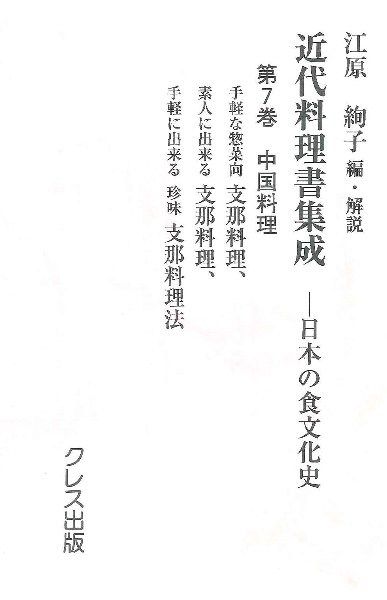 江原 絢子 編・解説
近代料理書集成 ―日本の食文化史
第7巻 中国料理
手軽な惣菜向 支那料理、
素人に出来る 支那料理、
手軽に出来る 珍味 支那料理法
クレス出版